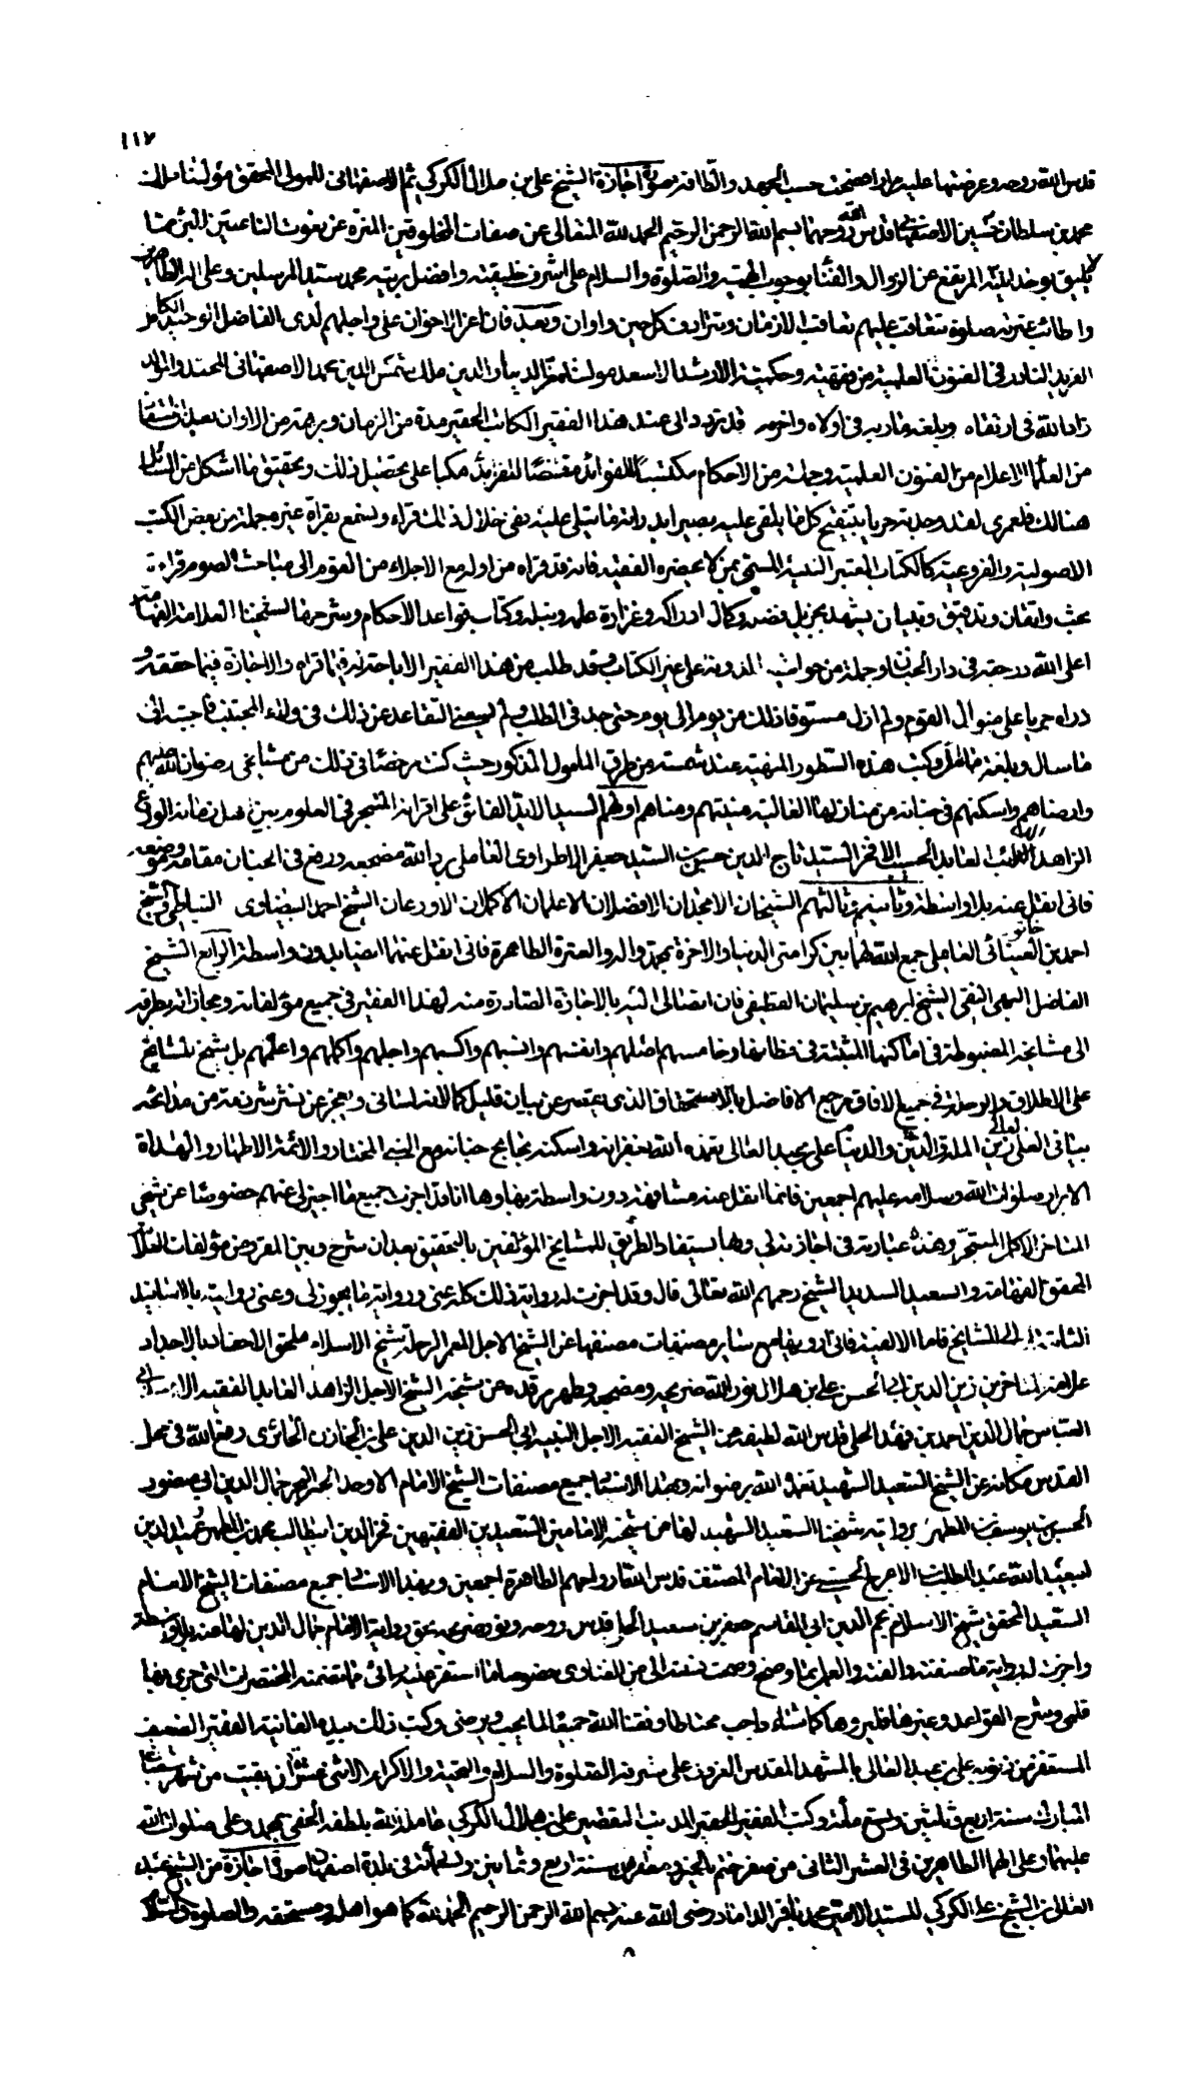 ١١٧
قدس الله روحه وعرضتها عليه مرارا فصححت حسب الجهد والطاقة صورة اجازة الشيخ علي بن هلال الكركي ثم الاصفهاني للمولى المحقق مولينا ملك
محمد بن سلطان حسين الاصفهاني قدس الله روحهما بسم الله الرحمن الرحيم الحمد لله المتعالي عن صفات المخلوقين المنزه عن نعوت الناعتين المبرئ مما
لا يليق بوحدانيته المرتفع عن الزوال والفناء بوجوب الهيته والصلوة والسلام على اشرف خليقته وافضل بريته محمد سيد المرسلين وعلى اله الطاهرين
واطائب عترته صلوة تتعاقب عليهم تعاقب الازمان وتترادف كل حين واوان وبعد فان اعز الاخوان علي واجلهم لدي الفاضل الوحيد الكامل
الفريد النادر في الفنون العلمية من فقهيته وحكميته الارشد الاسعد مولينا الدنيا والدين ملك شمس الدين محمد الاصفهاني المحتد والمولد
زاد الله في ارتقاه وبلغه مناه في اولاه واخراه قد تردد الى عند هذا الفقير الكاتب الحقير مدة من الزمان وبرهة من الاوان بعد
من العلماء الاعلام من الفنون العلمية وجملة من الاحكام مكتسبا للفوائد مقتنصا للفرائد مكبا على تحصيل ذلك وتحقيق ما اشكل من المسائل
هنالك فلعمري لقد وجدته حريا بتنقيح كل ما يلقى عليه بصيرا بدراية ما يتلى عليه ففي خلال ذلك قراء وسمع بقراة غيره جملة من بعض الكتب
الاصولية والفروعية كالكتاب المعتبر النبيه المسمى بمن لا يحضره الفقيه فانه قد قراه من اوله مع الاجلاء من القوم الى مباحث الصوم قراءة
بحث واتقان وتدقيق وتبيان يشهد بجزيل فضله وكمال ادراكه وغزارة علمه ونبله وكتاب قواعد الاحكام وشرحها لشيخنا العلامة الفهامة
اعلى الله درجته في دار الجنان وجملة من حواشيه المدونة على عين الكتاب وقد طلب من هذا الفقير الاباحة له فيما قراه والاجازة فيما حققه و
دراه جريا على منوال القوم ولم ازل مسوفا ذلك من يوم الى يوم حتى جد في الطلب ولم يسعني التقاعد عن ذلك في ولاء المجتنب فاجبته الى
ما سال وبلغته ما امل وكتبت هذه السطور المنهية عند شمة من طرق المامول المذكور حيث كنت مرخصا في ذلك من مشايخي رضوان الله عليهم
وارضاهم واسكنهم في جنانه من منازلها العالية منيتهم ومناهم اولهم السيد الايد الفائق على اقرانه المتبحر في العلوم بين فضلاء زمانه الورع
الزاهد العابد الحسيب الافخر السيد تاج الدين حسن بن السيد جعفر الاطراوي العاملي برد الله مضجعه ورفع في الجنان مقامه وموضعه
فاني انقل عنه بلا واسطة وثانيهم وثالثهم الشيخان الامجدان الافضلان الاعلمان الاكملان الاورعان الشيخ احمد البيضاوي النباطي والشيخ
احمد بن خاتون العيناثي العاملي جمع الله لهما بين كرامتي الدنيا والاخرة بمحمد واله والعترة الطاهرة فاني انقل عنهما ايضا بدون واسطة الرابع الشيخ
الفاضل البهي النقي الشيخ ابراهيم بن سليمان القطيفي فان اتصالي اليه بالاجازة الصادرة منه لهذا الفقير في جميع مؤلفاته ومجازاته بطرقه
الى مشايخه المضبوطة في اماكنها المثبتة في مظانها وخامسهم افضلهم واتقنهم وانسبهم واكسبهم واجلهم واكملهم واعلمهم بل شيخ المشايخ
على الاطلاق والرحلة في جميع الافاق مرجع الافاضل بالاستحقاق الذي يقصر عن بيان قليل كمالاته لساني ويعجز عن نشر شرذمة من مدائحه
بناني العلي زين الملة والدين والدنيا علي بن عبد العالي تغمده الله بغفرانه واسكنه بحابح جنانه مع النبي المختار والائمة الاطهار والهداة
الابرار صلوات الله وسلامه عليهم اجمعين فانما انقل عنه مشافهة دون واسطة وها انا قد اجزت جميع ما اجيز لي عنهم خصوصا عن شيخي
المتاخر الاكمل المتبحر وهذه عبارته في اجازته لي وبها يستفاد الطريق للمشايخ المؤلفين بالتحقيق بعد ان شرح وبين المقرو من مؤلفات العلامة
المحقق الفهامة والسعيد السديد الشيخ رحمهم الله تعالى قال وقد اجزت له رواية ذلك كله عني ورواية ما يجوز لي وعني روايته بالاسانيد
الثابتة الى المشايخ فاما الالفية فاني ارويها مع ساير مصنفات مصنفها عن الشيخ الاجل المعمر الرحلة شيخ الاسلام ملحق الاحفاد بالاجداد
علامة المتاخرين زين الدين ابي الحسن علي بن هلال نور الله ضريحه ومضجعه وطهر مرقده عن شيخه الشيخ الاجل الزاهد العابد الفقيه ابي
العباس جمال الدين احمد بن فهد الحلي قدس الله لطيفه عن الشيخ الفقيه الاجل النبيه ابي الحسن زين الدين علي بن الخازن الحائري رفع الله في محل
القدس مكانه عن الشيخ السعيد الشهيد تغمده الله برضوانه وبهذا الاسناد جميع مصنفات الشيخ الامام الاوحد البحر جمال الدين ابي منصور
الحسن بن يوسف المطهر برواية شيخنا السعيد الشهيد لها من شيخيه الامامين السعيدين الفقيهين فخر الدين ابي طالب محمد بن المطهر وعميد الدين
ابي عبد الله عبد المطلب الاعرج الحسيني عن الامام المصنف قدس الله ارواحهم الطاهرة اجمعين وبهذا الاسناد جميع مصنفات الشيخ الامام
السعيد المحقق شيخ الاسلام نجم الدين ابي القاسم جعفر بن سعيد الحلي قدس روحه ونور ضريحه بحق رواية الامام جمال الدين لها عنه بلا واسطة
واجزت له رواية ما صنفته والفته والعمل بما وضح وصحت نسبته الي من الفتاوى خصوصا ما استقر عليه رائي مما تضمنته المختصرات التي جرى بها
قلمي وشرح القواعد وغيرها فليروها كما شاء واحب محتاطا وفقنا الله جميعا لما يحب ويرضى وكتب ذلك بيده الفانية الفقير الضعيف
المستغفر من ذنوبه علي بن عبد العالي بالمشهد المقدس الغروي على مشرفه الصلوة والسلام والتحية والاكرام لاثنتي عشرة ان بقيت من شهر شعبان
المبارك سنة اربع وثلثين وتسعمائة وكتب الفقير الحقير المذنب التقصير علي بن هلال الكركي عامله الله بلطفه الخفي بمحمد وعلي صلوات الله
عليهما وعلى الهما الطاهرين في العشر الثاني من صفر ختم بالخير والظفر سنة اربع وثمانين وتسعمائة في بلدة اصفهان صورة اجازة من الشيخ عبد
العالي بن الشيخ علي الكركي للسيد الامير محمد باقر الداماد رضي الله عنه بسم الله الرحمن الرحيم الحمد لله كما هو اهله ومستحقه والصلوة والسلام